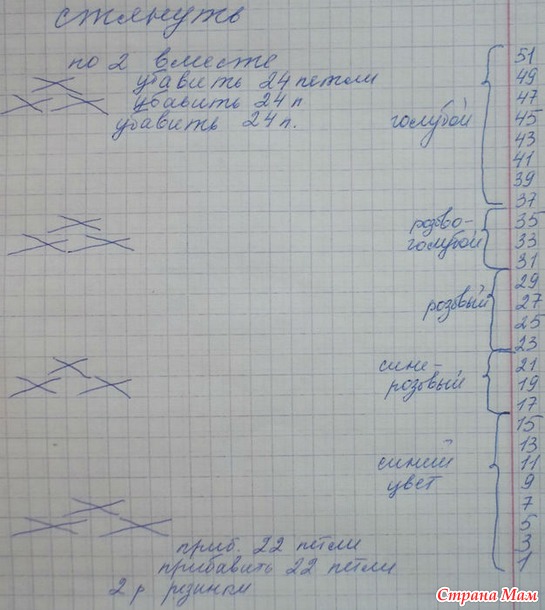 стянуть
по 2 вместе
убавить 24 петли
убавить 24 п
убавить 24 п.
51
49
47
голубой 45
43
41
39
37
розово- 35
голубой 33
31
29
розовый 27
25
23
сине- 21
розовый 19
17
15
13
синий 11
цвет 9
7
5
3
1
приб. 22 петли
прибавить 22 петли
2 р резинки
Страна Мам